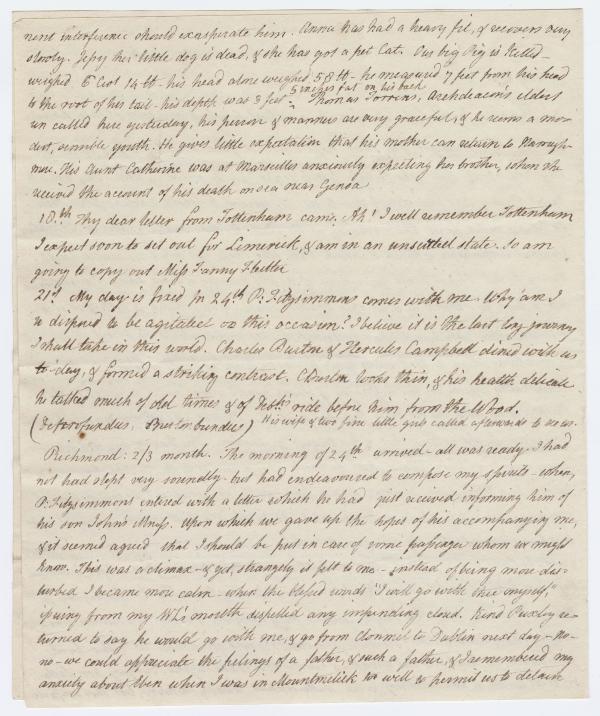 nent interference should exasperate him. Anna has had a heavy fit, & recovers very
slowly. Jessy her little dog is dead, & she has got a pet Cat. Our big Pig is killed—
weighed 6 Cwt 14 lb — his head alone weighed 58 lb — he measured 7 feet from his head
5 inches fat on his back
to the root of his tail — his depth was 3 feet. Thomas Torrens, Archdeacon's eldest
son called here yesterday, his person & manners are very graceful, & he seems a mo-
dest, sensible youth. He gives little expectation that his mother can return to
more. His Aunt Catherine was at Marseilles anxiously expecting her brother, when she
received the account of his death on sea near Genoa
18.th Thy dear letter from Tottenham came. Ah! I well remember Tottenham
I expect soon to set out for Limerick, & am in an unsettled state. So am
going to copy out Miss Fanny
21st My day is fixed for 24th P. Fitzsimmons comes with me. Why am I
so disposed to be agitated on this occasion? I believe it is the last long journey
I shall take in this world. Charles Burton & Hercules Campbell dined with us
to-day, & formed a striking contrast. CBurton looks thin, & his health delicate
he talked much of old times & of ride before him, from the Wood.
His wife & two fine little girls called afterwards to see us.
Richmond: 2/3 month. The morning of 24th arrived — all was ready. I had
not had slept very soundly — but had endeavoured to compose my spirits — when,
P. Fitzsimmons entered with a letter which he had just received informing him of
his son John's illness. Upon which we gave up the hopes of his accompanying me,
& it seemed agreed that I should be put in care of some passenger whom we might
know. This was a climax — & yet, strangely it felt to me — instead of being more dis-
turbed I became more calm — when the blessed words "I will go with thee myself,"
issuing from my WL's mouth dispelled any impending cloud. Kind Puxley re-
turned to say he would go with me, & go from Clonmel to Dublin next day — no—
no — we could appreciate the feelings of a father, & such a father, & I remembered my
anxiety about Eben when I was in Mountmelick too well to permit us to detach